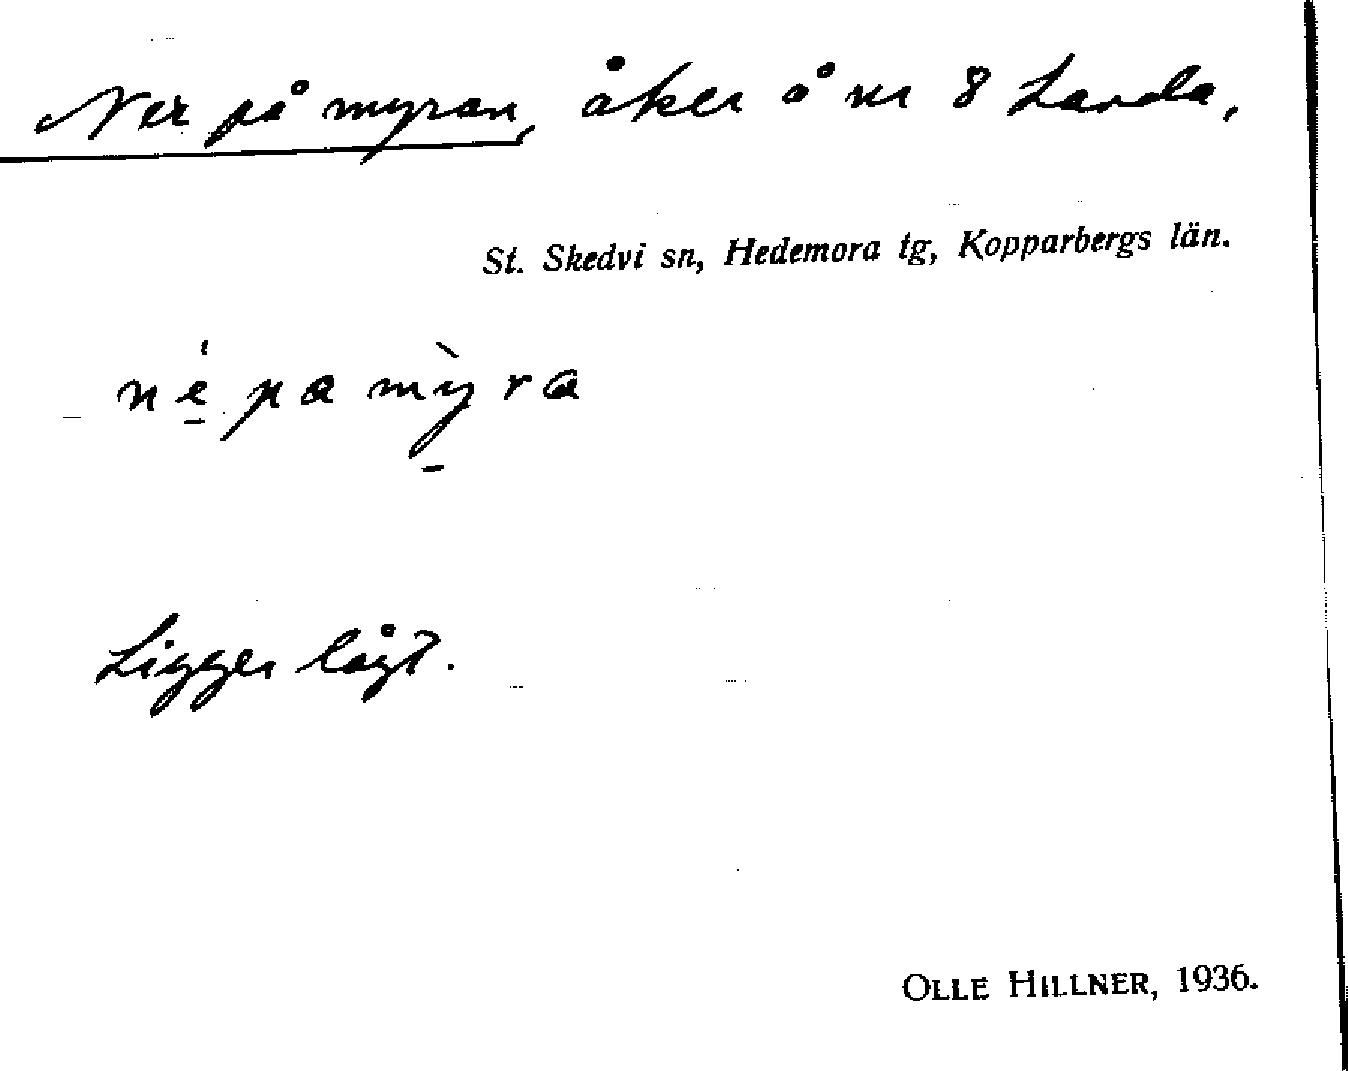 Ner på myran, åker å nr 8 Landa,
St. Skedvi sn, Hedemora tg, Kopparbergs län.
né̱ pa mỳ̱ra
Ligger lågt.
OLLE HILLNER, 1936.